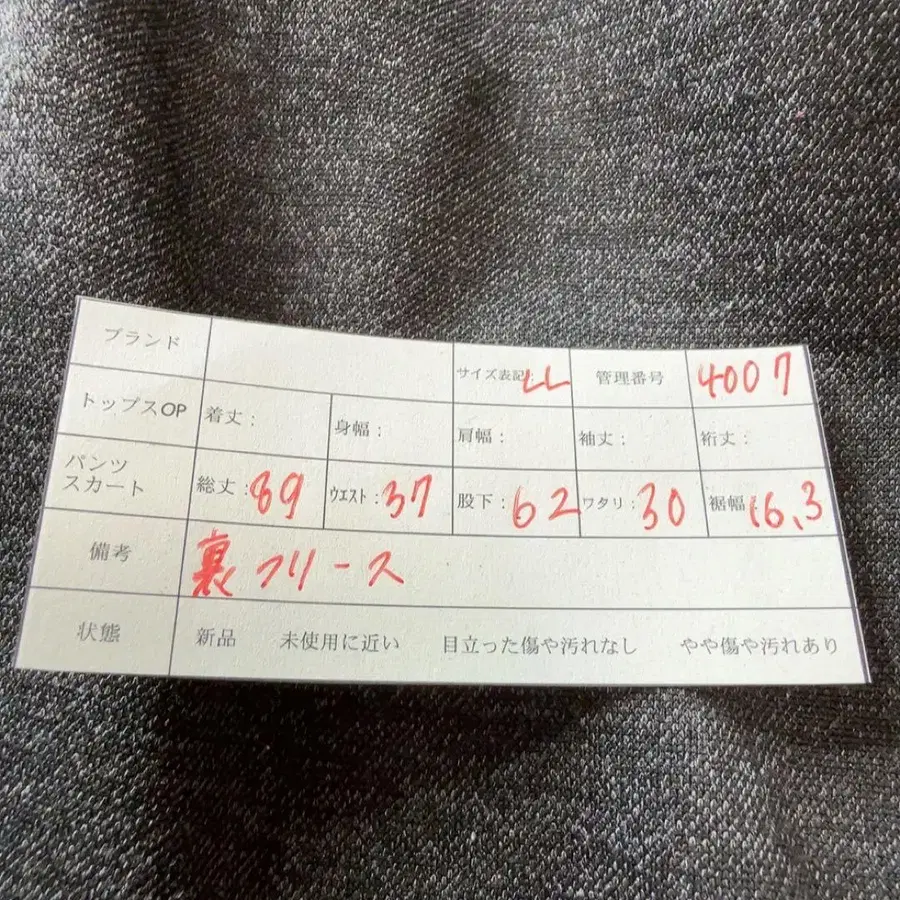 ブランド サイズ表記: LL 管理番号 4007
トップスOP 着丈: 身幅: 肩幅: 袖丈: 裄丈:
パンツ
スカート 総丈:89 ウエスト:37 股下:62 ワタリ:30 裾幅:16.3
備考 裏フリース
状態 新品 未使用に近い 目立った傷や汚れなし やや傷や汚れあり